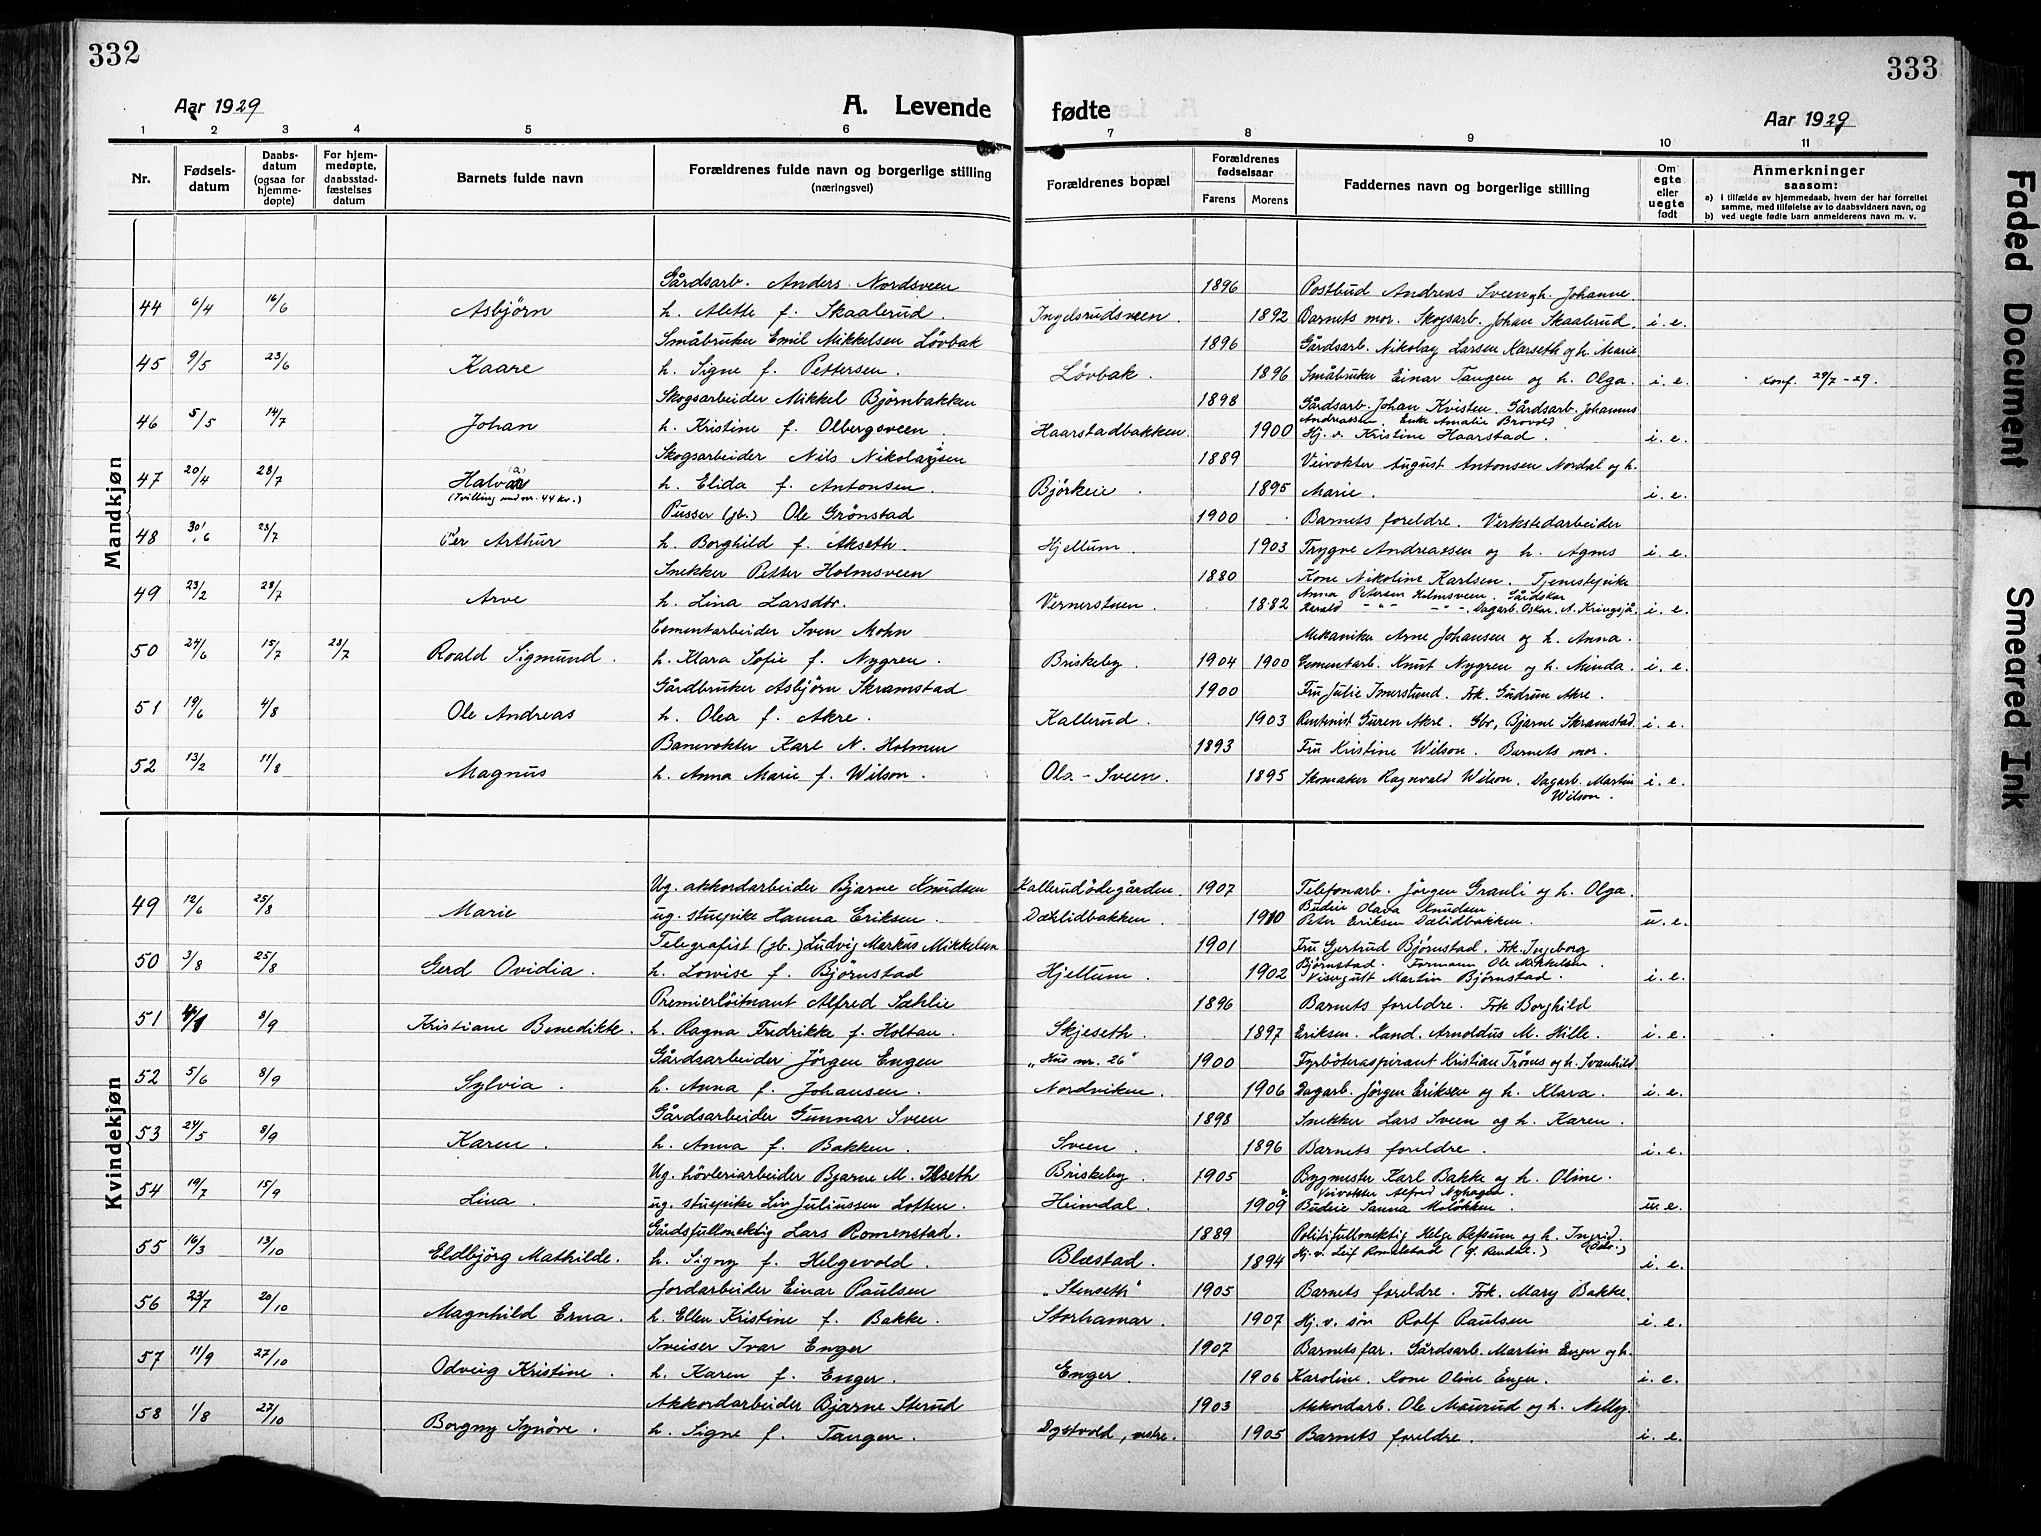 332
333
Aar 1929
A. Levende
fødte
Aar 1929
1 2 3 4 5 6 7 8 9 10 11
Nr.
Fødsels-
datum
Daabs-
datum
(ogsaa for
hjemme-
døpte)
For hjem-
medøpte,
daabsstad-
fæstelses
datum
Barnets fulde navn
Forældrenes fulde navn og borgerlige stilling
(næringsvei)
Forældrenes bopæl
Forældrenes
fødselsaar
Farens Morens
Faddernes navn og borgerlige stilling
Om
egte
eller
uegte
født
Anmerkninger
saasom:
a) I tilfælde av hjemmedaab, hvem der har forrettet
samme, med tilføielse av to daabsvidners navn, og
b) ved uegte fødte barn anmelderens navn m. v.
Mandkjøn
Gårdsarb. Anders Nordsveen 1896 Postbud Andreas Sveen og h. Johanne
44 6/4 16/6 Asbjørn h. Alette f. Skaalerud. Ingelsrudsveen. 1892 Barnets mor. Skogsarb. Johan Skaalerud. i. e.
Småbruker Emil Mikkelsen Lövbak 1896 Gårdsarb. Nikolay Larsen Karseth og h. Marie
45 9/5 23/6 Kaare h. Signe f. Pettersen. Lövbak. 1896 Småbruker Einar Tangen og h. Olga. i. e. Konf. 29/7-29.
Skogsarbeider Mikkel Björnbakken 1898 Gårdsarb. Johan Kvisten. Gårdsarb. Johannes
46 5/5 14/7 Johan h. Kristine f. Olbergsveen. Haarstadbakken 1900 Andreassen. Enke Amalie Brovold
Hj. v. Kristine Haarstad. i. e.
Skogsarbeider Nils Nikolaisen 1889 Veivokter August Antonsen Nordal og h.
47 20/4 28/7 Halvar h. Elida f. Antonsen. Björkeie. 1895 Marie. i. e.
(Tvilling med nr. 44 Kv.)
Pusser (jb.) Ole Grönstad 1900 Barnets foreldre. Verkstedarbeider
48 30/6 28/7 Per Arthur h. Borghild f. Akseth. Hjellum. 1903 Trygve Andreassen og h. Agnes i. e.
Snekker Petter Holmsveen 1880 Kone Nikoline Karlsen. Tjenestepike
49 23/2 28/7 Arve h. Lina Larsdtr. Vernerstuen. 1882 Anna Petersen Holmsveen. Gårdskar
Harald -"- -"-. Dagarb. Oskar. A. Kringsjå. i. e.
Cementarbeider Sven Mohn Mekaniker Arne Johansen og h. Anna.
50 24/6 15/7 28/7 Roald Sigmund. h. Klara Sofie f. Nygren. Briskeby. 1904 1900 Cementarb. Knut Nygren og h. Minda. i. e.
Gårdbruker Asbjörn Skramstad 1900 Fru Julie Imerslund. Frk. Gudrun Akre.
51 19/6 4/8 Ole Andreas h. Olea f. Akre. Kallerud. 1903 Rentenist Guren Akre. Gbr. Bjarne Skramstad. i. e.
Banevokter Karl N. Holmen 1893 Fru Kristine Wilson. Barnets mor.
52 13/2 11/8 Magnus h. Anna Marie f. Wilson. Ols.-Sveen. 1895 Skomaker Ragnvald Wilson. Dagarb. Martin i. e.
Wilson.
Kvindekjøn
Ug. akkordarbeider Bjarne Knudsen Kallerudödegården. 1907 Telefonarb. Jörgen Grauli og h. Olga.
49 12/6 25/8 Marie ug. stuepike Hanna Eriksen. Dælidbakken. 1910 Budeie Olava Knudsen
Peter Eriksen Dælidbakken. u. e.
Telegrafist (jb.) Ludvig Markus Mikkelsen 1901 Fru Gertrud Björnstad. Frk. Ingeborg
50 3/8 25/8 Gerd Ovidia. h. Lovise f. Björnstad Hjellum. 1902 Björnstad. Formann Ole Mikkelsen.
Visergutt Martin Björnstad. i. e.
Premierlöitnant Alfred Sahlie 1896 Barnets foreldre. Frk Borghild
51 8/9 Kristiane Benedikte. h. Ragna Fredrikke f. Holtan. Skjeseth. 1897 Eriksen. Cand. Arnoldus M. Hille. i. e.
Gårdsarbeider Jörgen Engen „Hus nr. 26" 1900 Fyrböteraspirant Kristian Trönes og h. Svanhild
52 5/6 8/9 Sylvia. h. Anna f. Johansen. Nordviken. 1906 Dagarb. Jörgen Eriksen og h. Klara. i. e.
Gårdsarbeider Gunnar Sveen 1898 Snekker Lars Sveen og h. Karen.
53 24/5 8/9 Karen. h. Anna f. Bakken. Sveen. 1896 Barnets foreldre. i. e.
Ug. hövleriarbeider Bjarne M. Ilseth Briskeby. 1905 Bygmester Karl Bakke og h. Oline.
54 19/7 15/9 Lina. ug. stuepike Liv Juliussen Lotten. Heimdal. 1909 Veivokter Alfred Nyhagen.
Budeie Sanna Molökken. u. e.
Gårdsfullmektig Lars Romenstad. 1889 Politifullmektig Helge Refsum og h. Ingrid.
55 16/3 13/10 Eldbjörg Mathilde. h. Signy f. Helgevold. Blæstad. 1894 Hj. v. Leif Romenstad (Ø. Rendal.) (Oslo.) i. e.
Jordarbeider Einar Paulsen „Stenseth" 1905 Barnets foreldre. Frk. Mary Bakke.
56 23/7 20/10 Magnhild Erna. h. Ellen Kristine f. Bakke. Storhamar. 1907 Hj. v. sön Rolf Paulsen i. e.
Sveiser Ivar Enger 1907 Barnets far. Gårdsarb. Martin Enger og h.
57 11/9 27/10 Odveig Kristine. h. Karen f. Enger. Enger. 1906 Karoline. Kone Oline Enger. i. e.
Akkordarbeider Bjarne Sterud 1903 Akkordarb. Ole Maurud og h. Nelly.
58 1/8 27/10 Borgny Synöve. h. Signe f. Tangen. Dystvold, vestre. 1905 Barnets foreldre. i. e.
Faded Document
Smeared Ink